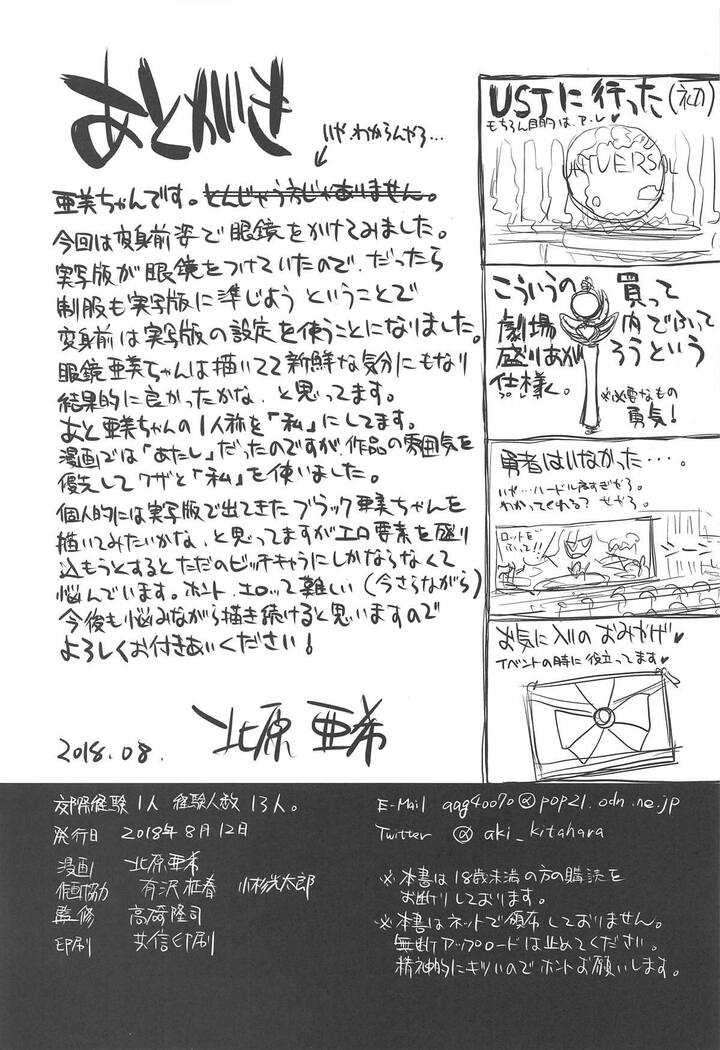 あとがき
いや、わからんやろ…
亜美ちゃんです。とんじゃう方じゃありません。
今回は変身前姿で眼鏡をかけてみました。
実写版が眼鏡をつけていたので、だったら
制服も実写版に準じようということで
変身前は実写版の設定を使うことになりました。
眼鏡亜美ちゃんは描いてて新鮮な気分にもなり
結果的に良かったかな、と思ってます。
あと亜美ちゃんの1人称を「私」にしてます。
漫画では「あたし」だったのですが、作品の雰囲気を
優先してワザと「私」を使いました。
個人的には実写版で出てきたブラック亜美ちゃんを
描いてみたいかな、と思ってますがエロ要素を盛り
込もうとするとただのビッチキャラにしかならなくて
悩んでいます。ホント、エロって難しい(今さらながら)
今後も悩みながら描き続けると思いますので
よろしくお付きあいください!
2018.08. 北原亜希
USJに行った(初)
もちろん目的は、ア、レ♥
UNIVERSAL
こういうの買って
劇場内でふって
盛りあがろうという
仕様。
※必要なもの
勇気!
勇者はいなかった・・・。
いや…ハードル高すぎやろ。
わかってくれる?せやろ。
ロッドを
ふって!!
ジーン
お気に入りのおみやげ♥
イベントの時に役立ってます♥
交際経験1人 経験人数13人。
発行日 2018年8月12日
漫画 北原亜希
作画協力 有沢征春 小杉光太郎
監修 高崎隆司
印刷 共信印刷
E-Mail aag40070@pop21.odn.ne.jp
Twitter @aki_kitahara
※本書は18歳未満の方の購読を
お断りしております。
※本書はネットで頒布しておりません。
無断アップロードは止めてください。
精神的にキツいのでホントお願いします。